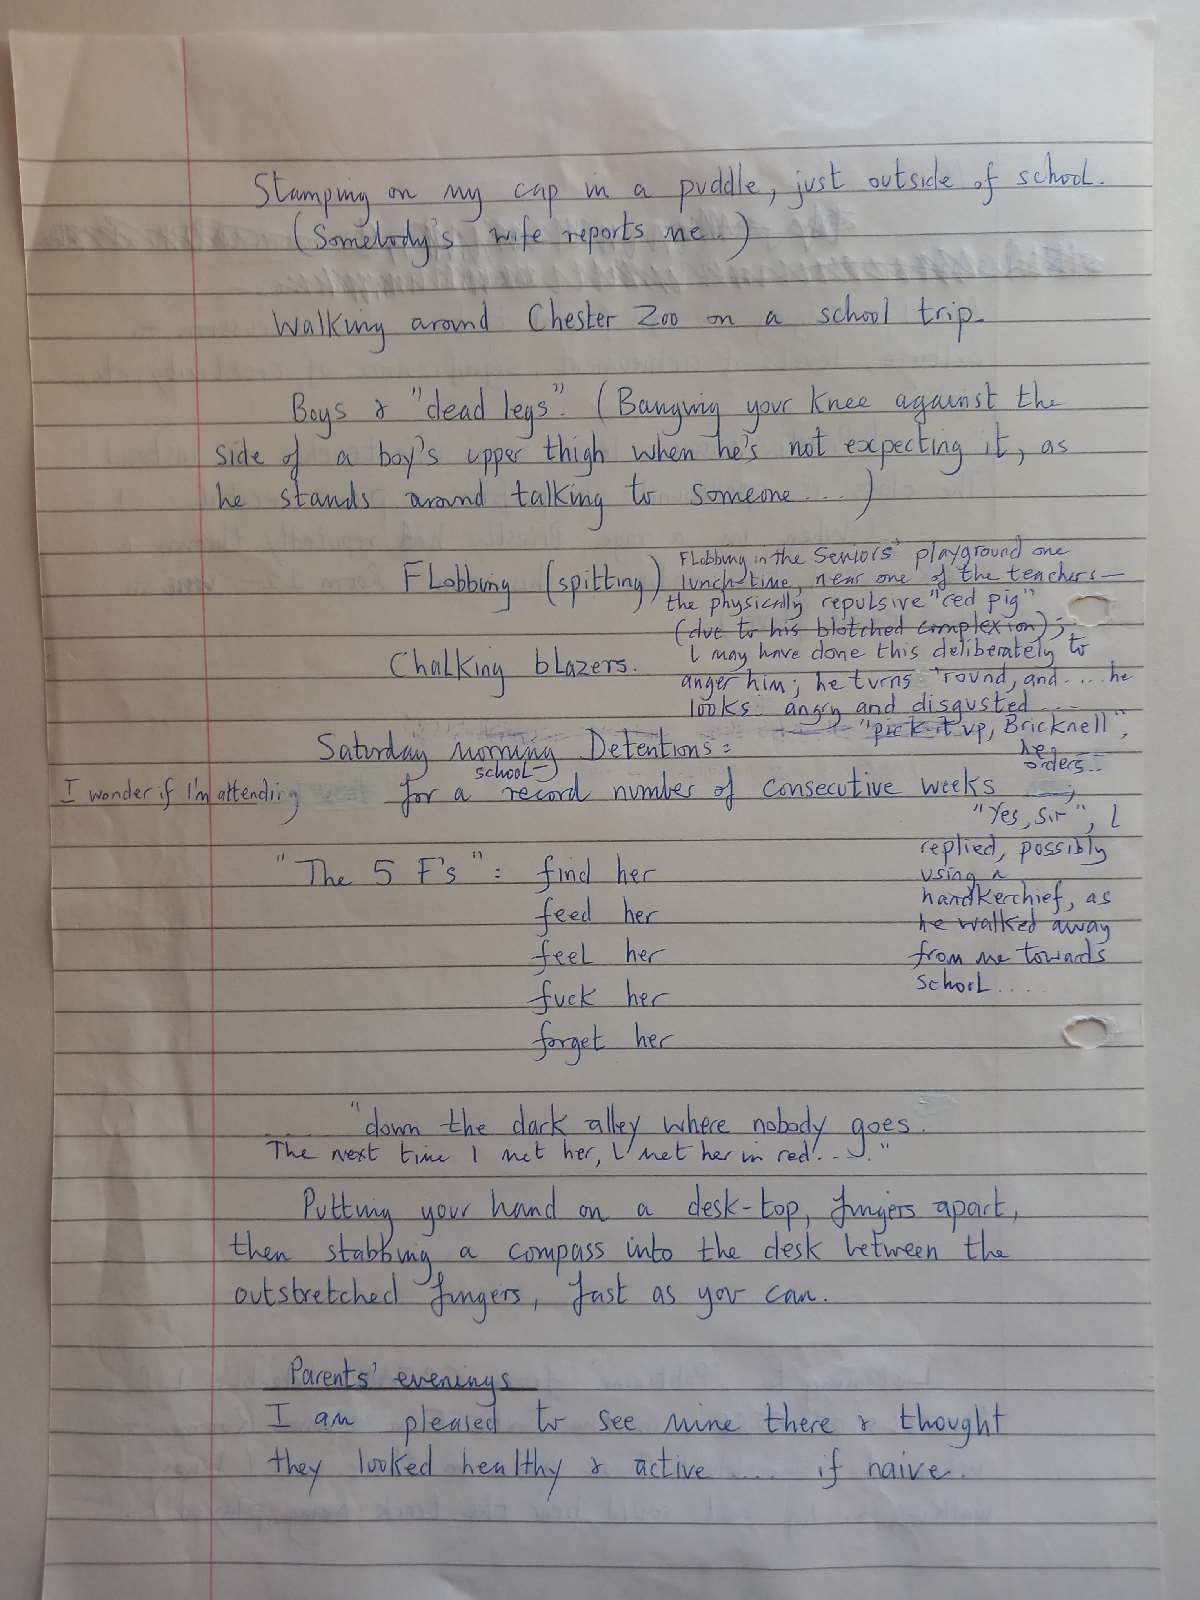 Stamping on my cap in a puddle, just outside of school.
(Somebody's wife reports me...)
Walking around Chester Zoo on a school trip.
Boys & "dead legs". (Banging your knee against the
side of a boy's upper thigh when he's not expecting it, as
he stands around talking to someone....)
Flobbing (spitting)
Flobbing in the Seniors' playground one
lunch-time, near one of the teachers—
the physically repulsive "red pig"
(due to his blotched complexion);
I may have done this deliberately to
anger him; he turns 'round, and.... he
looks angry and disgusted....
"pick it up, Bricknell",
he
orders...
"Yes, sir", I
replied, possibly
using a
handkerchief, as
he walked away
from me towards
school....
Chalking blazers.
Saturday morning Detentions:
school-
I wonder if I'm attending for a record number of consecutive weeks
"The 5 F's": find her
feed her
feel her
fuck her
forget her
.... "down the dark alley where nobody goes.
The next time I met her, I met her in red...."
Putting your hand on a desk-top, fingers apart,
then stabbing a compass into the desk between the
outstretched fingers, fast as you can.
Parents' evenings
I am pleased to see mine there & thought
they looked healthy & active.... if naive.